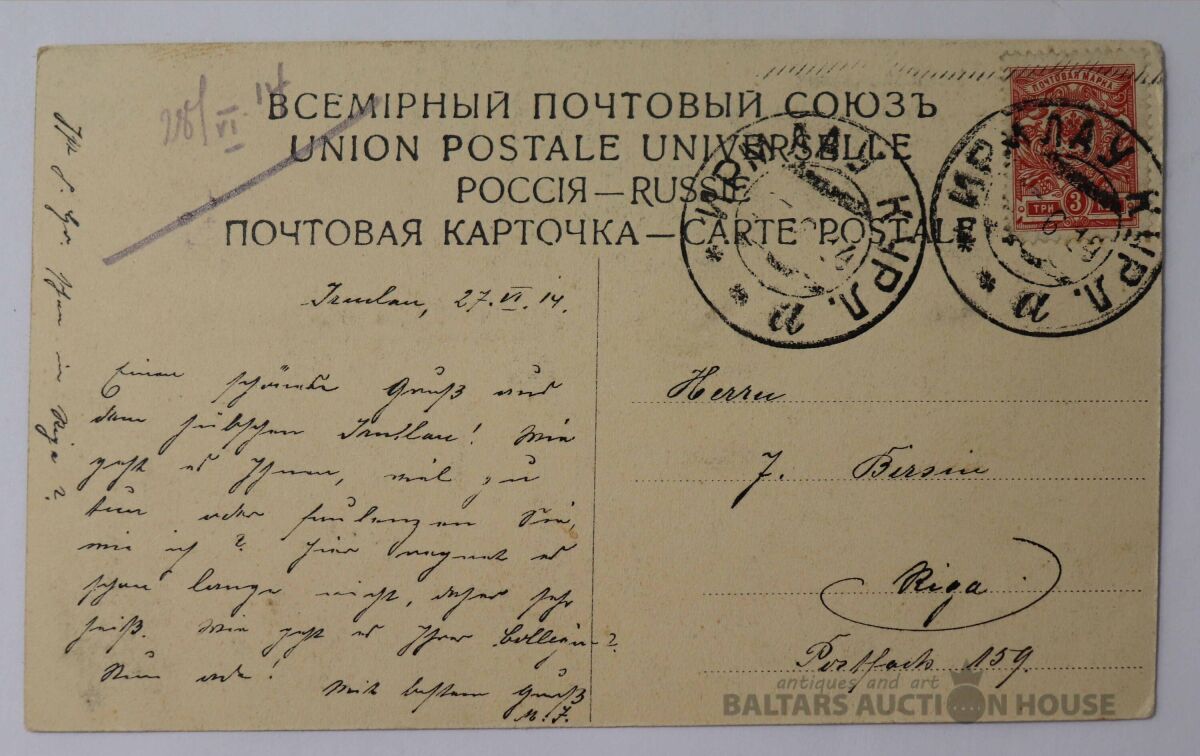 28/VI 14
ВСЕМІРНЫЙ ПОЧТОВЫЙ СОЮЗЪ
UNION POSTALE UNIVERSELLE
РОССІЯ — RUSSIE
ПОЧТОВАЯ КАРТОЧКА — CARTE POSTALE
ПОЧТОВАЯ МАРКА
ТРИ 3
ИРМЛАУ КУРЛ.
ИРМЛАУ КУРЛ.
Irmlau, 27.VI.14.
Einen schönen Gruß aus
dem hübschen Irmlau! Wie
geht es Ihnen, viel zu
tun oder faulenzen Sie,
wie ich? Hier regnet es
schon lange nicht, daher sehr
heiß. Wie geht es Ihrer Collegin?
Nun ade!
Mit bestem Gruß
M. J.
in Riga?
Herrn
J. Bersin
Riga
Postfach 159.
antiques and art
BALTARS AUCTION HOUSE